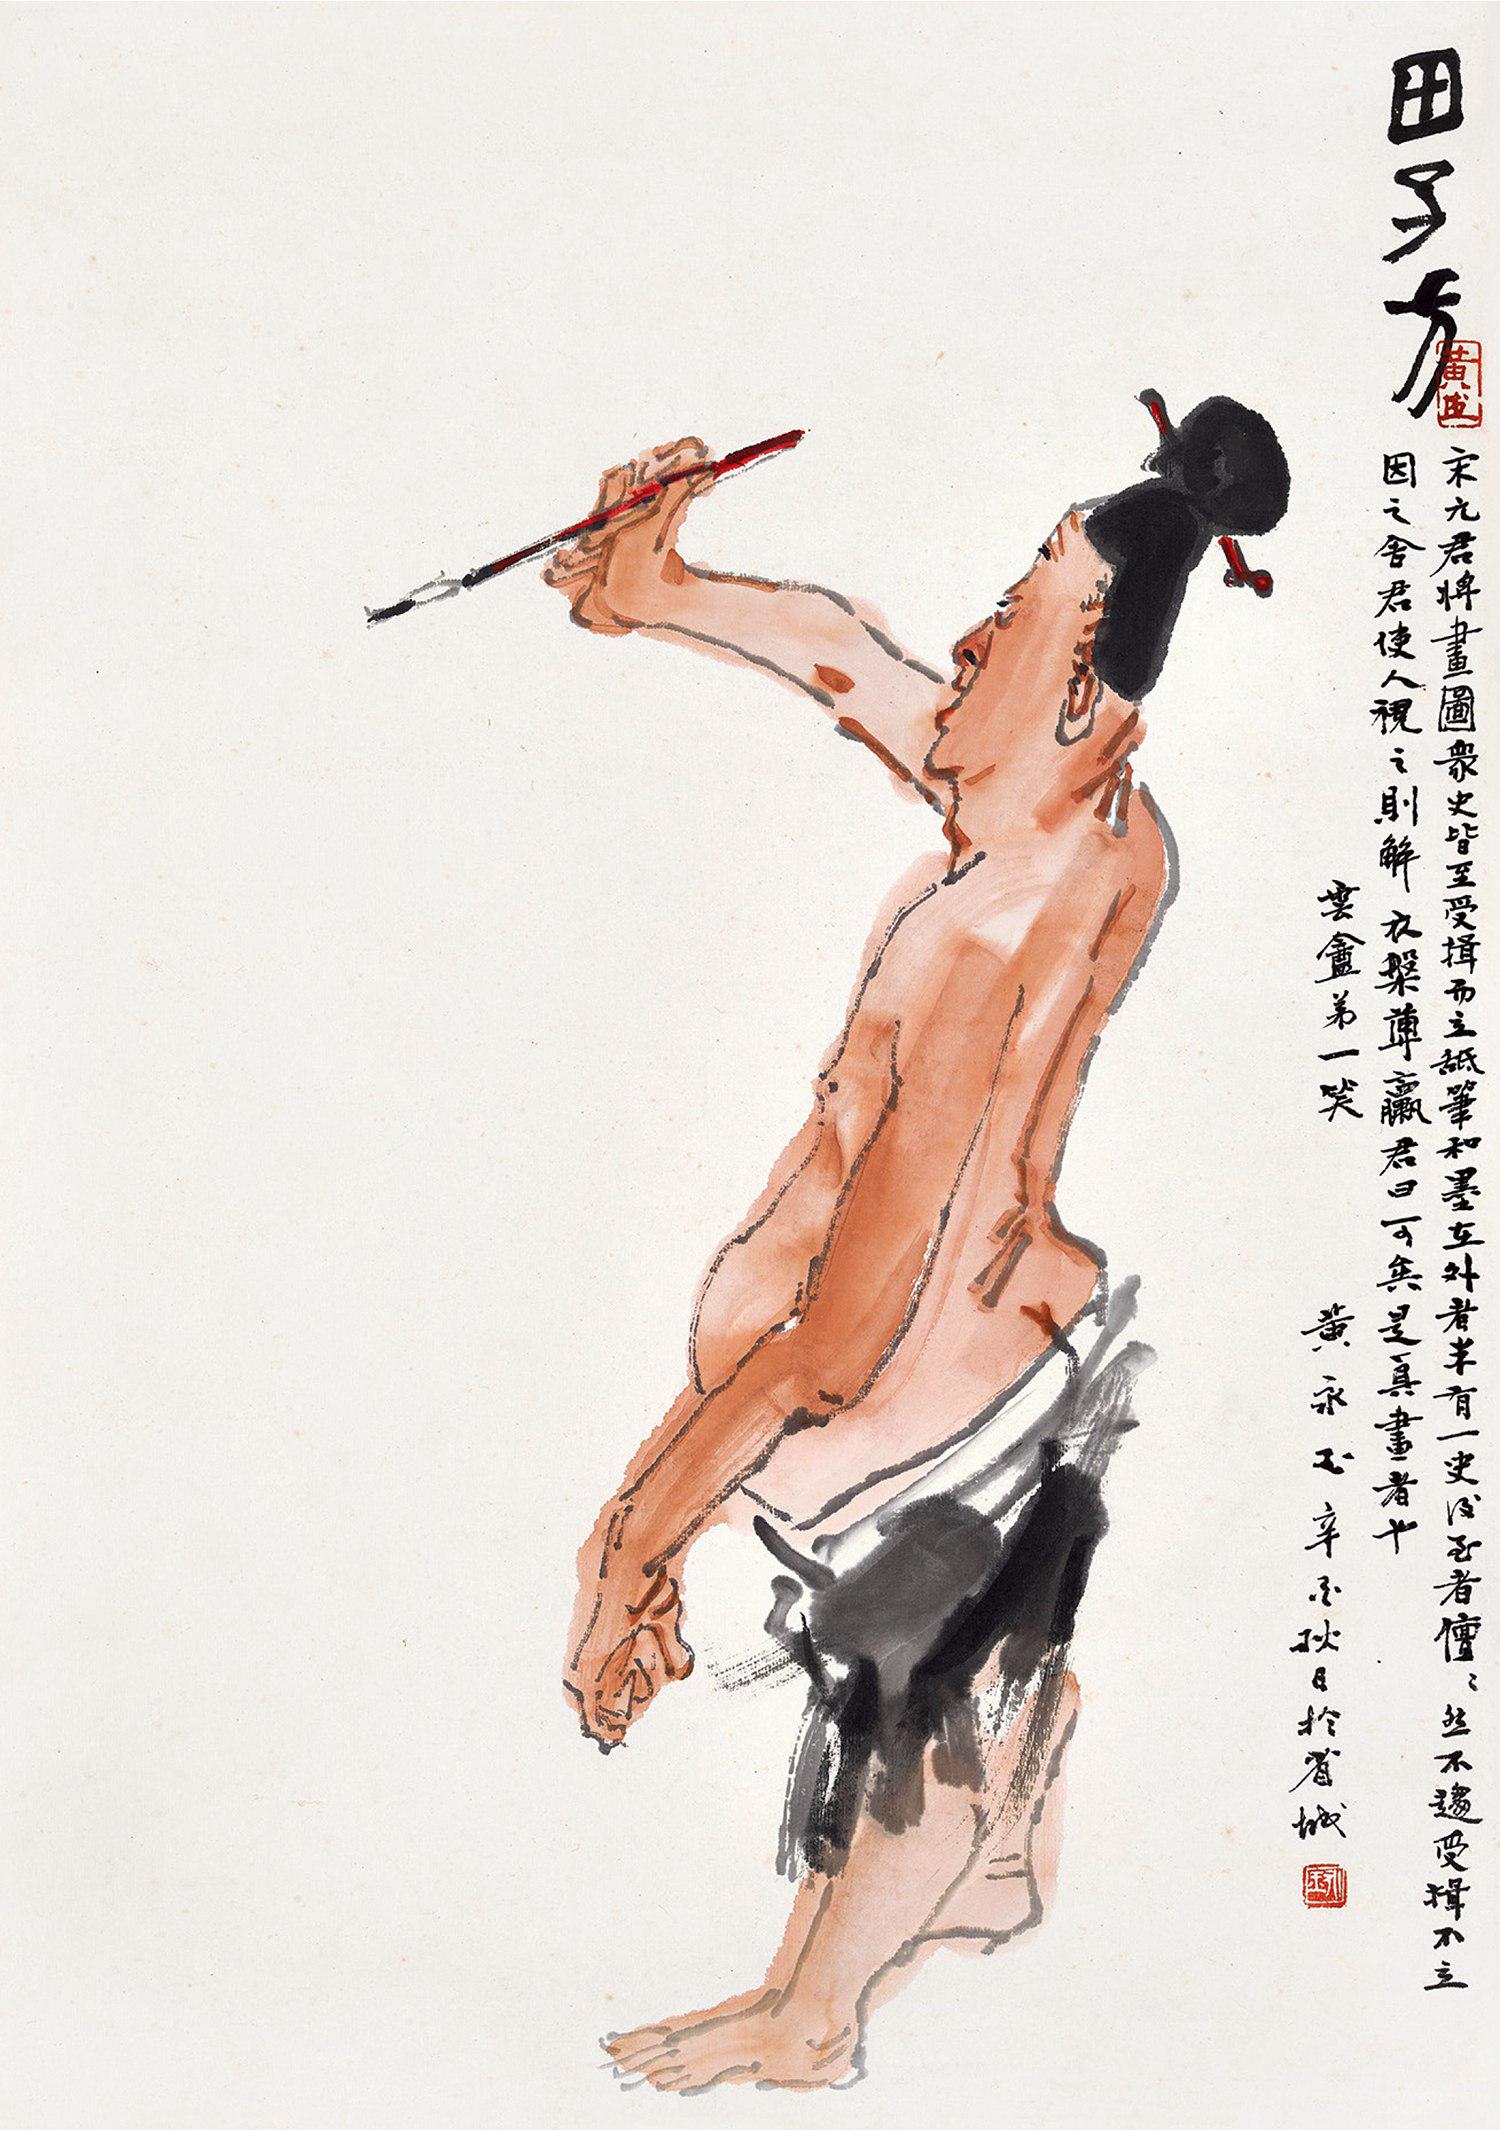 田子方
宋元君將畫圖衆史皆至受揖而立舐筆和墨在外者半有一史後至者儃〻然不趨受揖不立
因之舍君使人視之則解衣槃薄臝君曰可矣是真畫者也
雲盦弟一笑
黃永玉辛酉秋日於省城